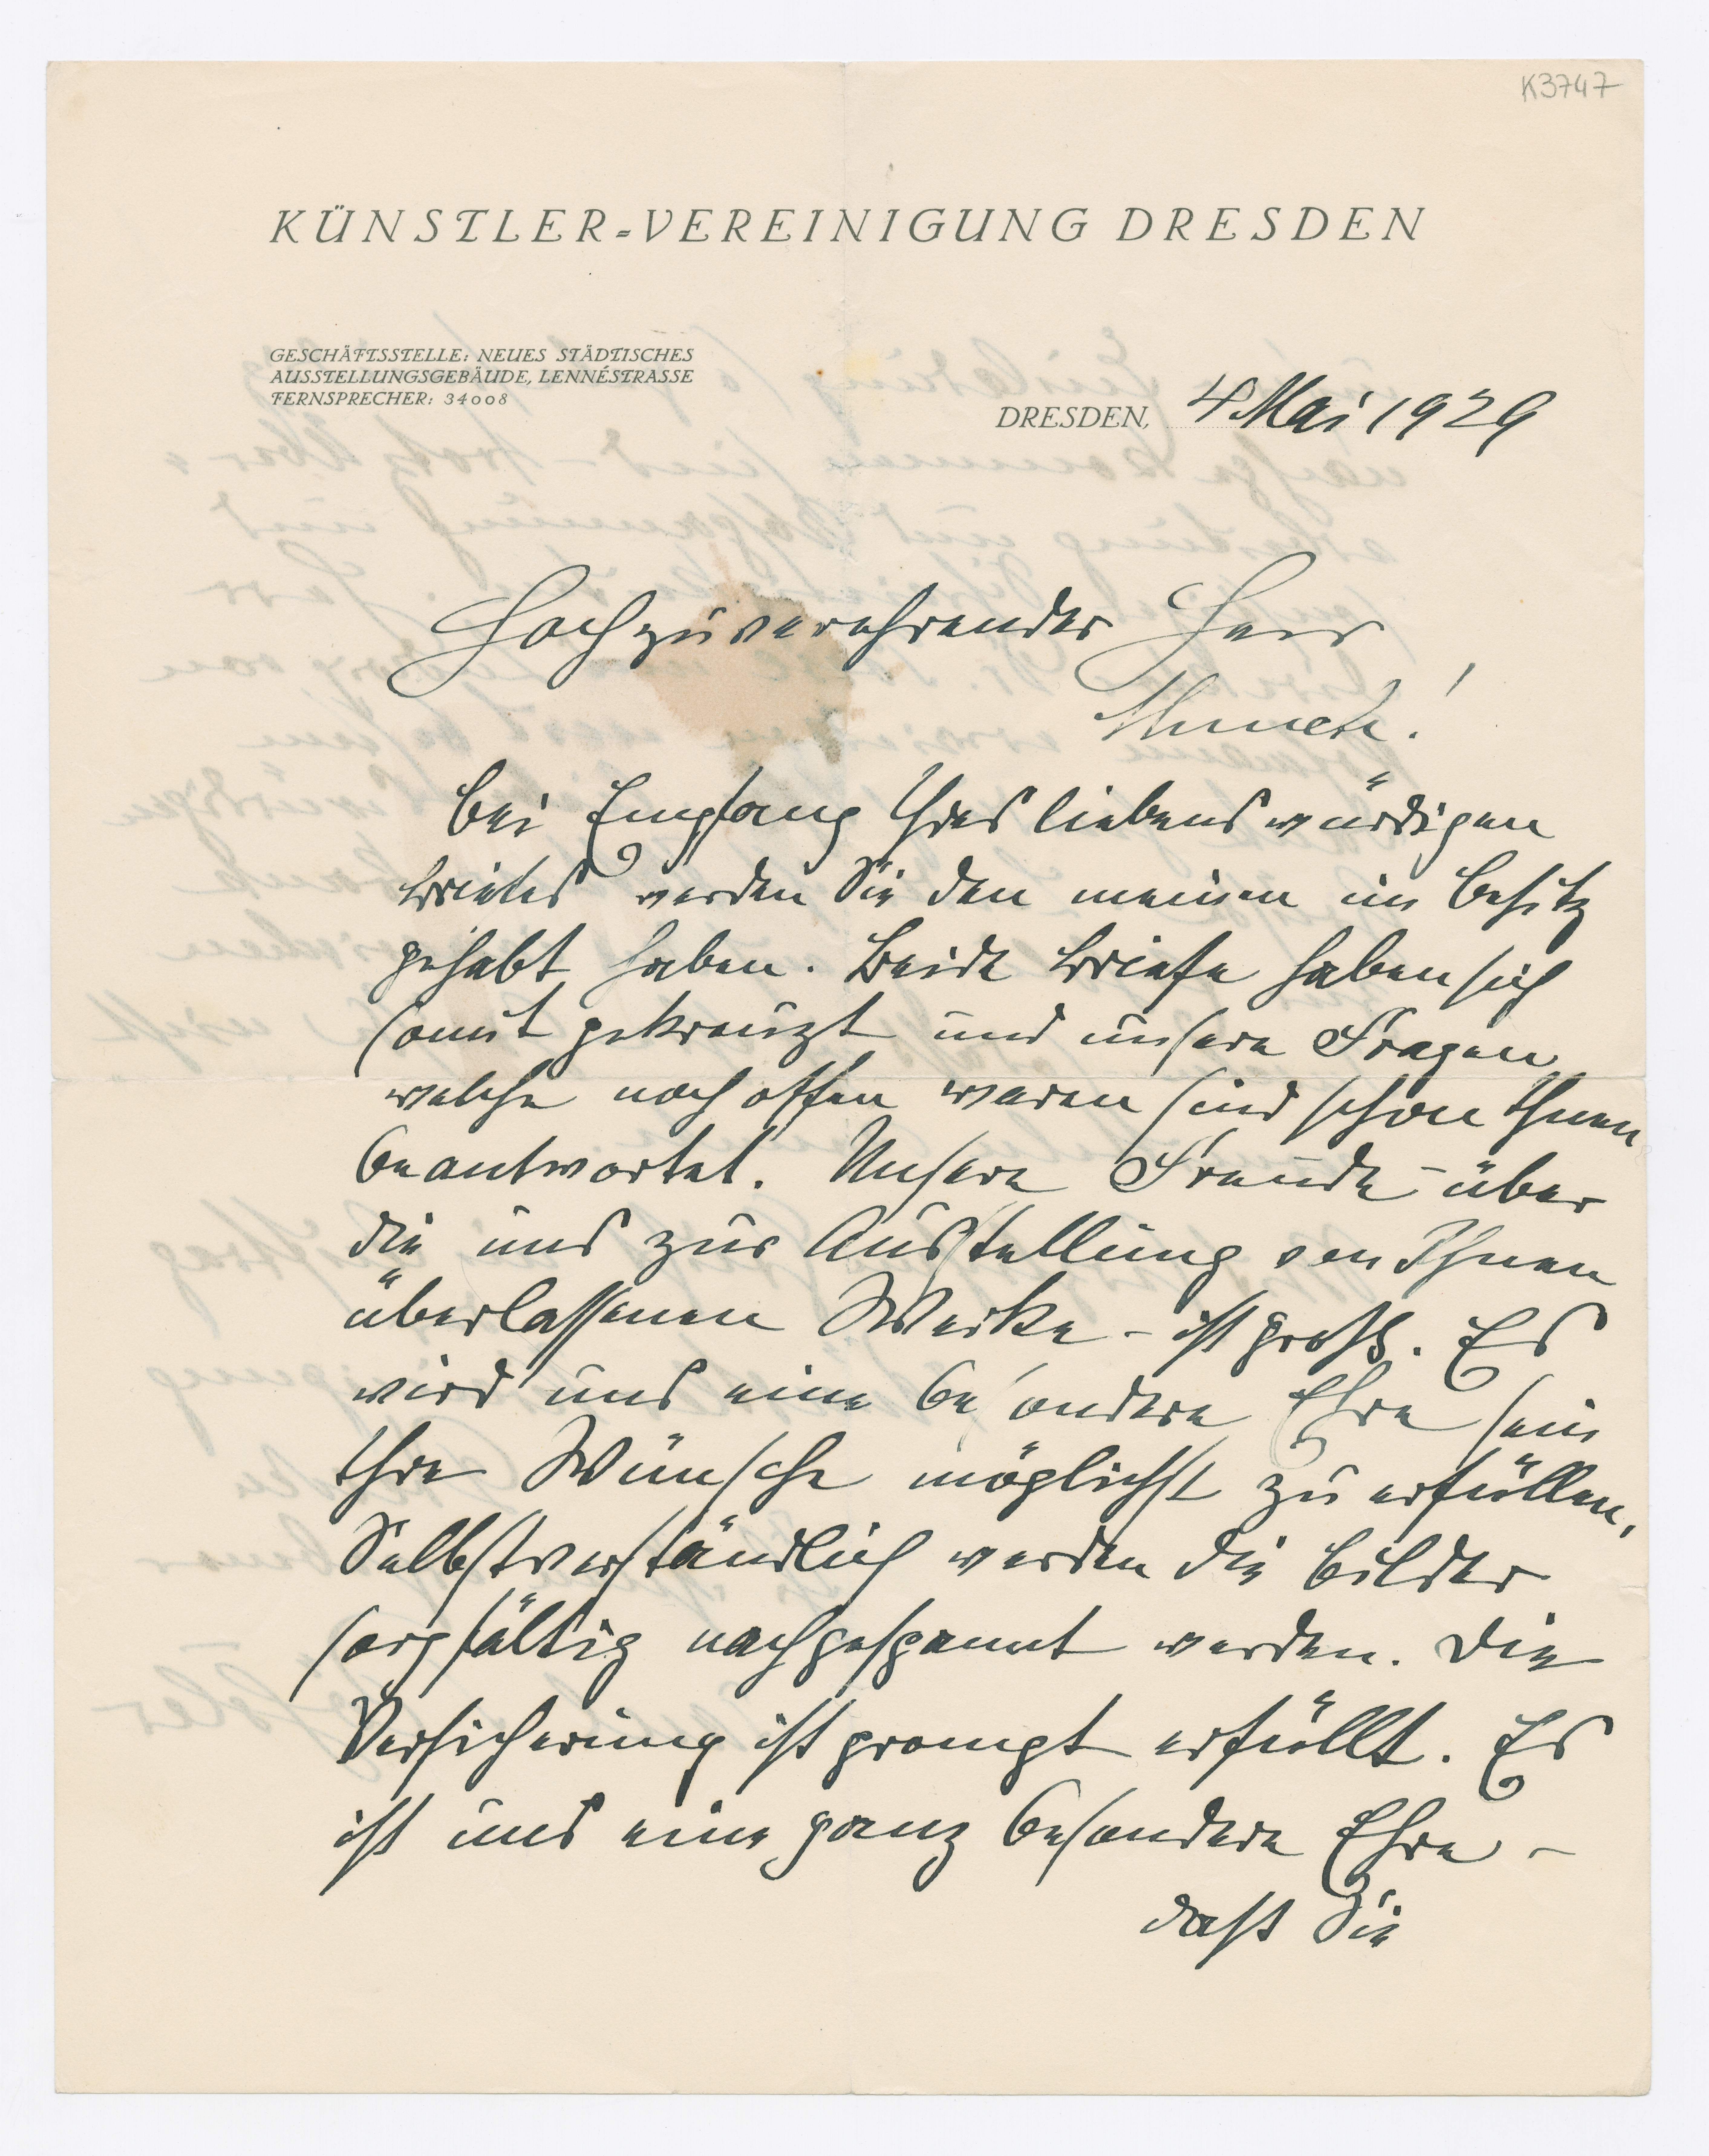 K3747
KÜNSTLER=VEREINIGUNG DRESDEN
GESCHÄFTSSTELLE: NEUES STÄDTISCHES
AUSSTELLUNGSGEBÄUDE, LENNÉSTRASSE
FERNSPRECHER: 34008
DRESDEN, 4 Mai 1929
Hochzuverehrender Herr
Munch!
Bei Empfang Ihres liebenswürdigen
Briefes werden Sie den meinen im Besitz
gehabt haben. Beide Briefe haben sich
somit gekreuzt und unsere Fragen
welche noch offen waren sind schon Ihnen
beantwortet. Unsere Freude – über
die uns zur Ausstellung von Ihnen
überlassenen Werke – ist groß. Es
wird uns eine besondere Ehre sein
Ihre Wünsche möglichst zu erfüllen,
Selbstverständlich werden die Bilder
sorgfältig nachgespannt werden. Die
Versicherung ist prompt erfüllt. Es
ist uns eine ganz besondere Ehre –
daß Sie